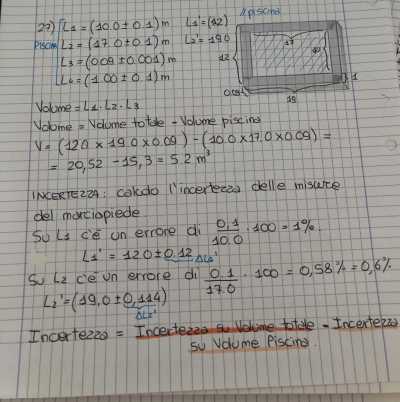 27) L1 = (10.0 ± 0.1) m L1' = (12)
PISCINA L2 = (17.0 ± 0.1) m L2' = 19.0
L3 = (0.09 ± 0.001) m
L4 = (1.00 ± 0.1) m
// piscina
17
10
12
0.09
1
19
Volume = L1 · L2 · L3
Volume = Volume totale - Volume piscina
V = (12.0 x 19.0 x 0.09) - (10.0 x 17.0 x 0.09) =
= 20,52 - 15,3 = 5.2 m³
INCERTEZZA: calcolo l'incertezza delle misure
del marciapiede
Su L1 c'è un errore di 0,1/10.0 · 100 = 1%.
L1' = 12.0 ± 0.12 ΔL1'
Su L2 c'è un errore di 0,1/17.0 · 100 = 0,58% = 0,6%
L2' = (19,0 ± 0,114)
ΔL2'
Incertezza = Incertezza su Volume totale - Incertezza
su Volume Piscina.